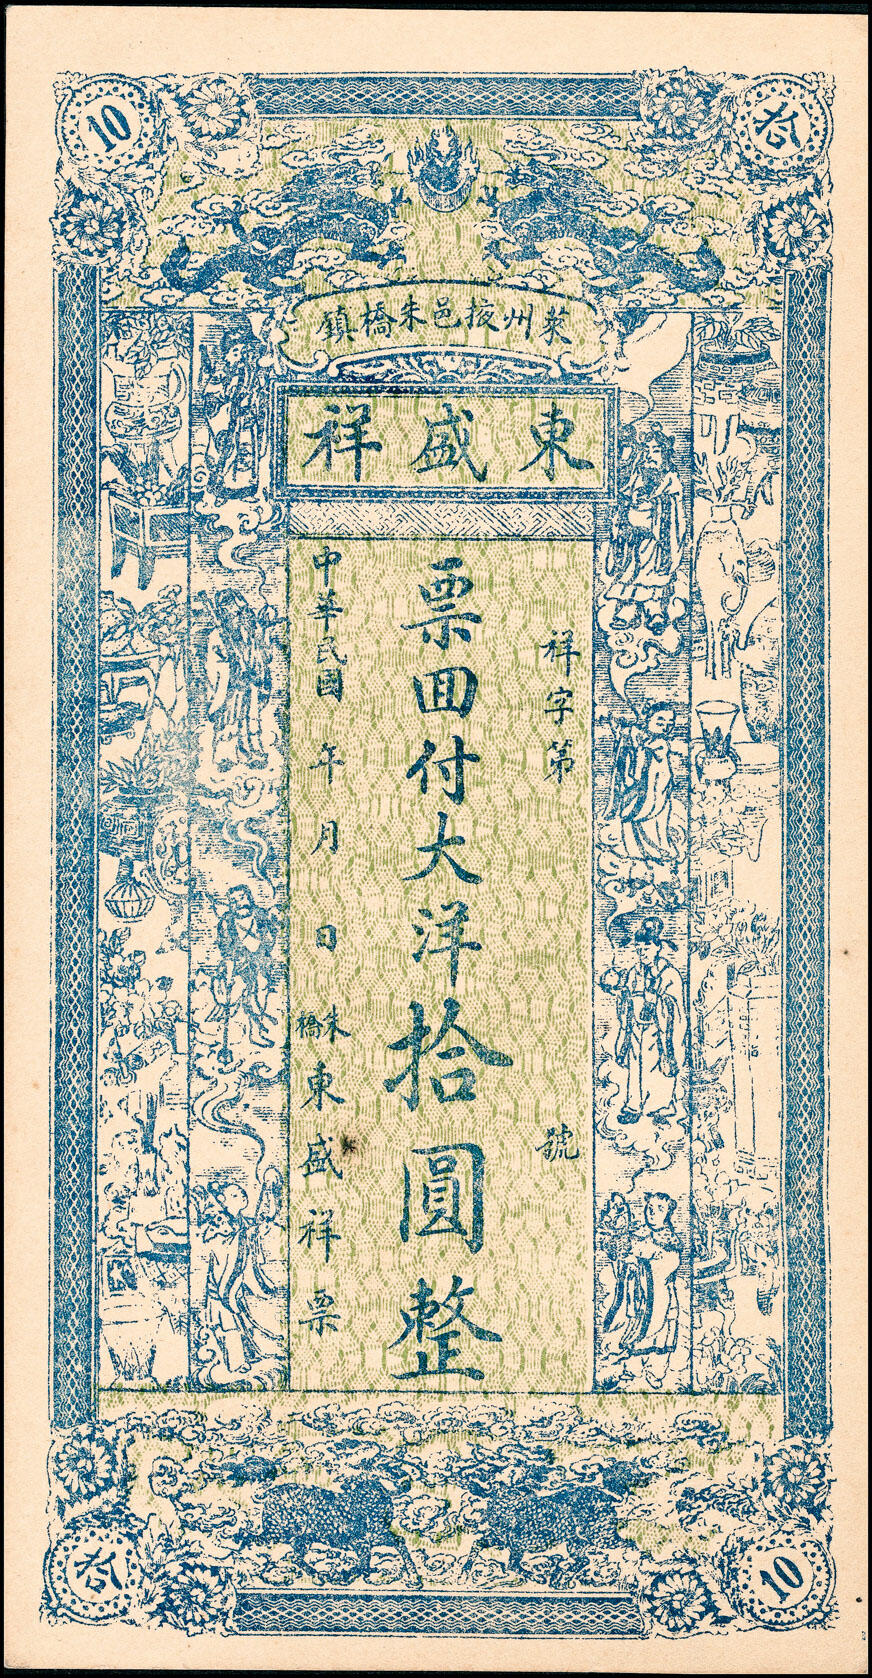 10
拾
萊州掖邑朱橋鎮
東盛祥
祥字第 號
票囬付大洋拾圓整
中華民國 年 月 日 朱橋 東盛祥票
拾
10